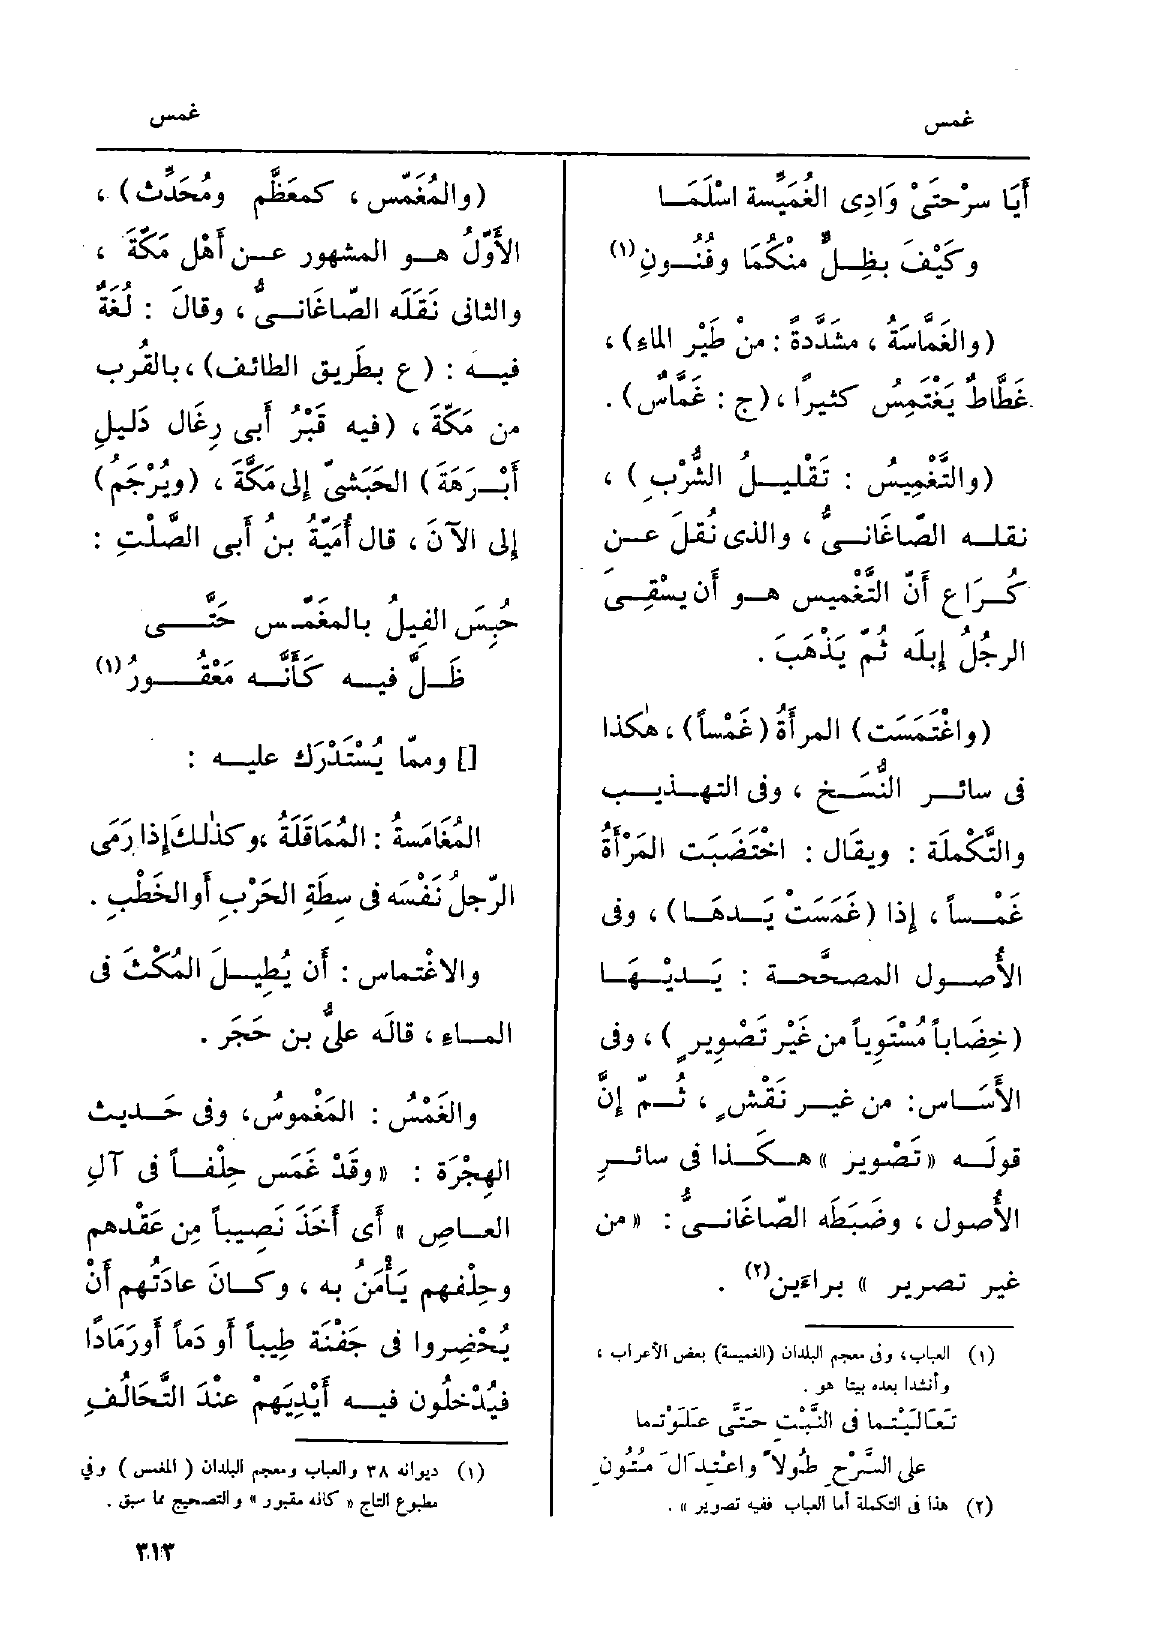 غمس
غمس
أَيَا سرْحتَىْ وَادِى الغُمَيِّسة اسْلَمَا
وكَيْفَ بظِلٍّ منْكُمَا وفُنُونِ (١)
(والغَمَّاسَةُ ، مشَدَّدةً : منْ طَيْرِ الماءِ) ،
غَطَّاطٌ يَغْتَمِسُ كثيرًا ، (ج : غَمَّاسٌ) .
(والتَّغْمِيسُ : تَقْلِيلُ الشُّرْبِ) ،
نقله الصّاغَانىُّ ، والذى نُقلَ عن
كُرَاع أَنّ التَّغْميس هو أَن يسْقِىَ
الرجُلُ إِبلَه ثُمّ يَذْهَبَ .
(واغْتَمَسَت) المرأَةُ (غَمْساً) ، هٰكذا
فى سائر النُّسَخ ، وفى التهذيب
والتَّكْملَة : ويقال : اخْتَضَبَت المَرْأَةُ
غَمْساً ، إِذا (غَمَسَتْ يَدهَا) ، وفى
الأُصول المصحَّحة : يَدَيْهَا
(خِضَاباً مُسْتَوِياً من غَيْر تَصْوِيرٍ) ، وفى
الأَسَاس : من غير نَقْشٍ ، ثُمّ إِنَّ
قولَه «تَصْوير» هكذا فى سائرِ
الأُصول ، وضَبَطَه الصّاغَانىُّ : «من
غير تصرير» براءَين (٢) .
(١) العباب، وفى معجم البلدان (الغميسة) بعض الأعراب ،
وأنشدا بعده بيتا هو .
تَعَالَيْتما فى النَّبْتِ حتَّى عَلَوْتما
على السَّرْحِ طُولاً واعْتِدالَ مُتُونِ
(٢) هذا فى التكملة أما العباب ففيه تصوير » .
(والمُغَمّس ، كمعَظَّم ومُحَدِّث) ،
الأَوَّلُ هو المشهور عن أَهْل مَكّةَ ،
والثانى نَقَلَه الصّاغَانىُّ ، وقالَ : لُغَةٌ
فيه : (ع بطَرِيق الطائف) ، بالقُرب
من مَكّةَ ، (فيه قَبْرُ أَبى رِغَال دَليلِ
أَبْرَهَةَ) الحَبَشىّ إِلى مَكَّةَ ، (ويُرْجَمُ)
إِلى الآنَ ، قال أُمَيّةُ بنُ أَبى الصَّلْتِ :
حُبِسَ الفِيلُ بالمغَمّس حَتَّى
ظَلَّ فيه كَأَنَّه مَعْقُورُ (١)
[] وممّا يُسْتَدْرَك عليه :
المُغَامَسةُ : المُمَاقَلَةُ ، وكذٰلكَ إِذا رَمَى
الرّجلُ نَفْسَه فى سِطَةِ الحَرْبِ أَو الخَطْبِ .
والاغْتماس : أَن يُطِيلَ المُكْثَ فى
الماءِ ، قالَه علىُّ بن حَجَر .
والغَمْسُ : المَغْموسُ ، وفى حَديث
الهِجْرَة : «وقَدْ غَمَس حِلْفاً فى آلِ
العاصِ» أَى أَخَذَ نَصِيباً مِن عَقْدهم
وحِلْفهم يَأْمَنُ به ، وكانَ عادَتُهم أَنْ
يُحْضِروا فى جَفْنَة طِيباً أَو دَماً أَو رَمَادًا
فيُدْخلُون فيه أَيْدِيَهمْ عنْدَ التَّحَالُفِ
(١) ديوانه ٣٨ والعباب ومعجم البلدان ( المغمس ) وفي
مطبوع التاج « كانه مقبور » والتصحيح مما سبق .
٣١٣